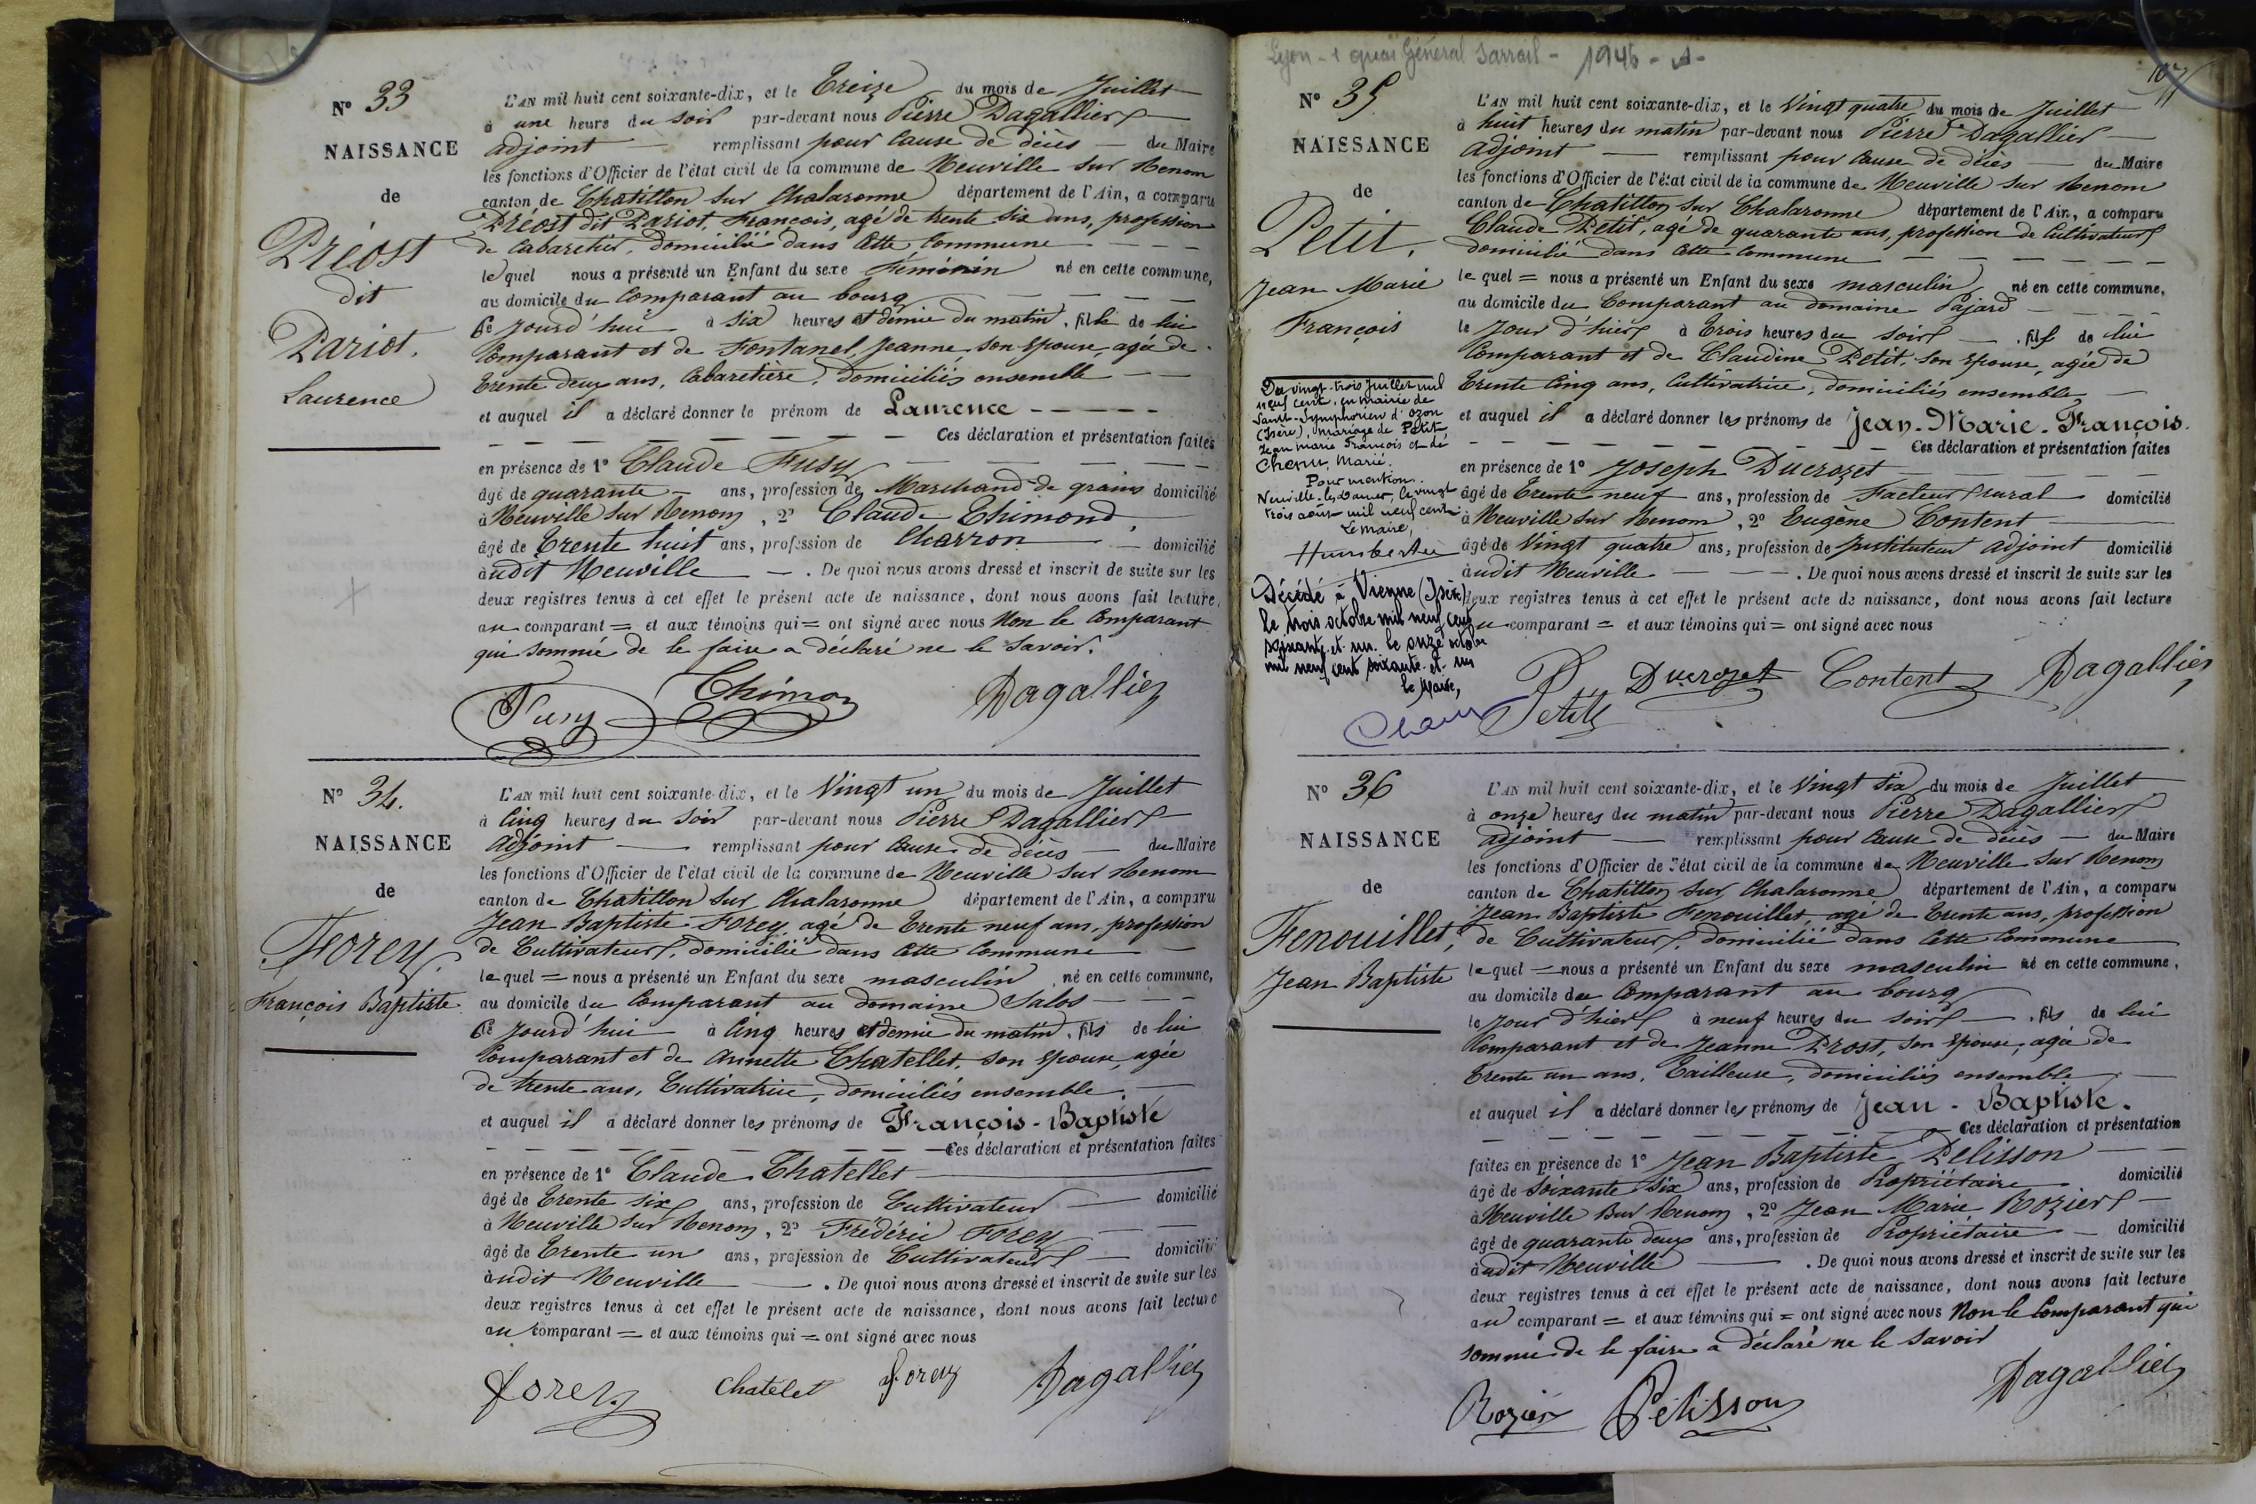 N° 33
NAISSANCE
de
Préost
dit
Pariot.
Laurence
L'AN mil huit cent soixante-dix, et le Treize du mois de Juillet
à une heure du soir par-devant nous Pierre Dagallier
adjoint — remplissant pour cause de décès — du Maire
les fonctions d'Officier de l'état civil de la commune de Neuville sur Renom
canton de Chatillon sur Chalaronne département de l'Ain, a comparu
Préost dit Pariot, François, agé de trente six ans, profession
de Cabaretier, domicilié dans cette Commune
lequel nous a présenté un Enfant du sexe féminin né en cette commune,
au domicile du Comparant au bourg
Ce jourd'hui à six heures et demie du matin, fille de lui
Comparant et de Fontanel, Jeanne, son épouse, agée de
trente deux ans, Cabaretière, domiciliés ensemble
et auquel il a déclaré donner le prénom de Laurence
Ces déclaration et présentation faites
en présence de 1° Claude Fusy
âgé de quarante ans, profession de Marchand de grains domicilié
à Neuville sur Renom, 2° Claude Thimond,
âgé de trente huit ans, profession de Charron — domicilié
àudit Neuville — . De quoi nous avons dressé et inscrit de suite sur les
deux registres tenus à cet effet le présent acte de naissance, dont nous avons fait lecture,
au comparant = et aux témoins qui = ont signé avec nous Non le Comparant
qui sommé de le faire a déclaré ne le savoir.
Fusy Thimon Dagallier
N° 34.
NAISSANCE
de
Forey.
François Baptiste
L'AN mil huit cent soixante-dix, et le Vingt un du mois de Juillet
à Cinq heures du soir par-devant nous Pierre Dagallier
Adjoint — remplissant pour cause de décès — du Maire
les fonctions d'Officier de l'état civil de la commune de Neuville sur Renom
canton de Chatillon sur Chalaronne département de l'Ain, a comparu
Jean Baptiste Forey, agé de trente neuf ans, profession
de Cultivateur, domicilié dans cette Commune
lequel = nous a présenté un Enfant du sexe masculin, né en cette commune,
au domicile du Comparant au domaine Salos
Ce jourd'hui à Cinq heures et demie du matin, fils de lui
Comparant et de Annette Chatellet, son épouse, agée
de trente ans, Cultivatrice, domiciliés ensemble
et auquel il a déclaré donner les prénoms de François-Baptiste
Ces déclaration et présentation faites
en présence de 1° Claude Chatellet
âgé de trente six ans, profession de Cultivateur — domicilié
à Neuville sur Renom, 2° Frédéric Forey
âgé de trente un ans, profession de Cultivateur — domicilié
àudit Neuville — . De quoi nous avons dressé et inscrit de suite sur les
deux registres tenus à cet effet le présent acte de naissance, dont nous avons fait lecture
au comparant = et aux témoins qui = ont signé avec nous
forey chatelet forey Dagallier
Lyon - 1 quai Général Sarrail - 1946 - A -
107
N° 35
NAISSANCE
de
Petit,
Jean Marie
François
Du vingt-trois Juillet mil
neuf cent, en mairie de
Saint-Symphorien d'ozon
(Isère), mariage de Petit
Jean marie François et de
Chenu, Marie.
Pour mention.
Neuville-les-Dames, le vingt
trois août mil neuf cent
Le maire,
Décédé à Vienne (Isère)
le trois octobre mil neuf cent
soixante et un. le onze octobre
mil neuf cent soixante et un
le Maire,
L'AN mil huit cent soixante-dix, et le Vingt quatre du mois de Juillet
à huit heures du matin par-devant nous Pierre Dagallier
adjoint — remplissant pour cause de décès — du Maire
les fonctions d'Officier de l'état civil de la commune de Neuville sur Renom
canton de Chatillon sur Chalaronne département de l'Ain, a comparu
Claude Petit, agé de quarante ans, profession de Cultivateur
domicilié dans cette Commune
lequel = nous a présenté un Enfant du sexe masculin né en cette commune,
au domicile du Comparant au domaine Pajard
le jour d'hier à trois heures du soir, fils de lui
Comparant et de Claudine Petit, son épouse, agée de
trente cinq ans, Cultivatrice, domiciliés ensemble
et auquel il a déclaré donner les prénoms de Jean-Marie-François.
Ces déclaration et présentation faites
en présence de 1° Joseph Ducrozet
âgé de trente neuf ans, profession de Facteur rural domicilié
à Neuville sur Renom, 2° Eugène Content
âgé de vingt quatre ans, profession de Instituteur adjoint domicilié
àudit Neuville — . De quoi nous avons dressé et inscrit de suite sur les
deux registres tenus à cet effet le présent acte de naissance, dont nous avons fait lecture
au comparant = et aux témoins qui = ont signé avec nous
Petit Ducrozet Content Dagallier
N° 36
NAISSANCE
de
Fenouillet,
Jean Baptiste
L'AN mil huit cent soixante-dix, et le Vingt six du mois de Juillet
à onze heures du matin par-devant nous Pierre Dagallier
adjoint — remplissant pour cause de décès — du Maire
les fonctions d'Officier de l'état civil de la commune de Neuville sur Renom
canton de Chatillon sur Chalaronne département de l'Ain, a comparu
Jean Baptiste Fenouillet, agé de trente ans, profession
de Cultivateur, domicilié dans cette Commune
lequel = nous a présenté un Enfant du sexe masculin né en cette commune,
au domicile du Comparant au bourg
le jour d'hier à neuf heures du soir, fils de lui
Comparant et de Jeanne Prost, son épouse, agée de
trente un ans, Tailleuse, domiciliés ensemble
et auquel il a déclaré donner les prénoms de Jean-Baptiste.
Ces déclaration et présentation
faites en présence de 1° Jean Baptiste Pelisson
âgé de soixante six ans, profession de Propriétaire domicilié
à Neuville sur Renom, 2° Jean Marie Rozier
âgé de quarante deux ans, profession de Propriétaire — domicilié
àudit Neuville — . De quoi nous avons dressé et inscrit de suite sur les
deux registres tenus à cet effet le présent acte de naissance, dont nous avons fait lecture
au comparant = et aux témoins qui = ont signé avec nous Non le Comparant qui
sommé de le faire a déclaré ne le savoir
Rozier Pelisson Dagallier